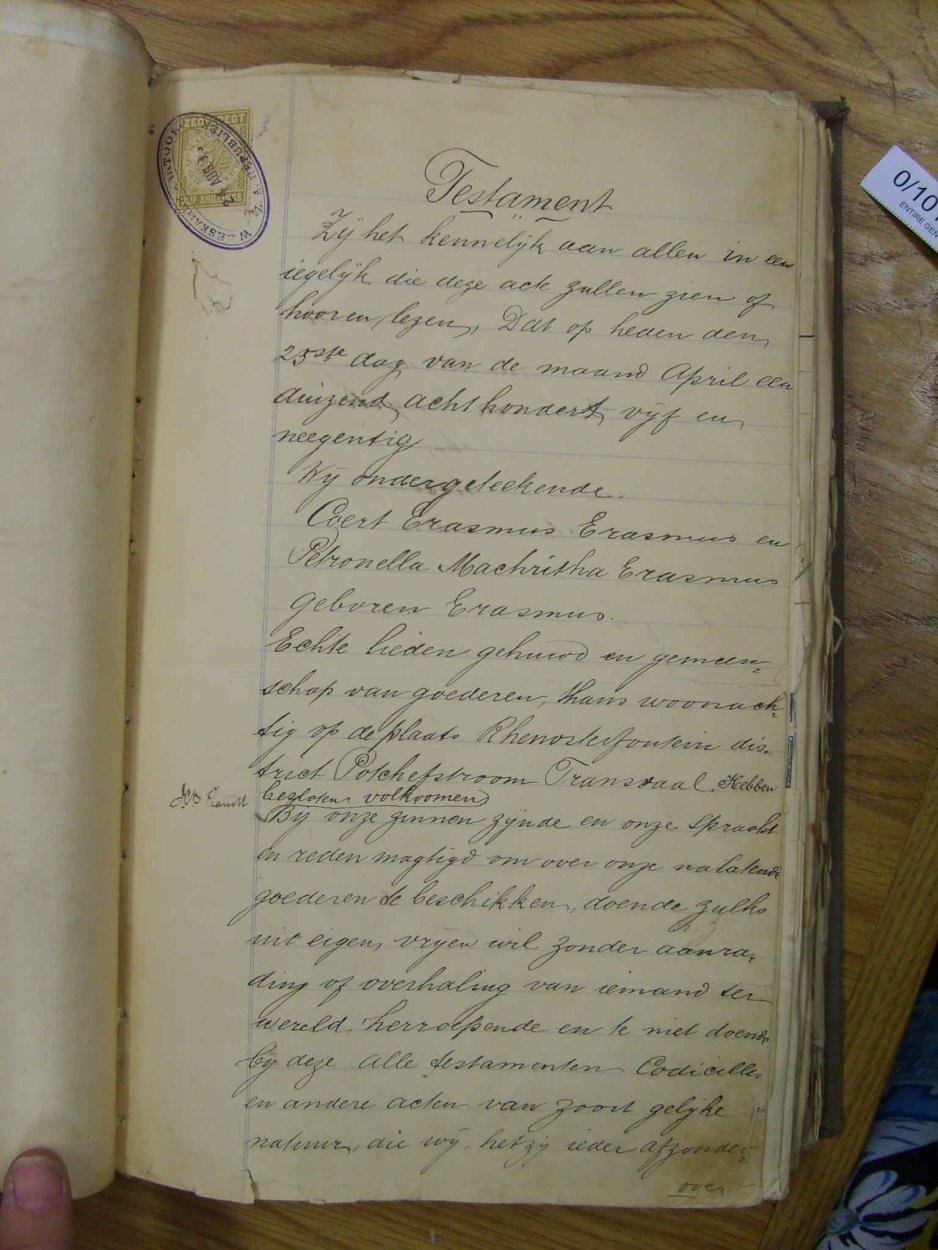 ZEGELREGT
VIJF SHILLINGS
24 AUG 95
Testament
Zij het kennelijk aan allen in een
iegelijk die deze acte zullen zien of
hooren lezen, Dat op heden den
25ste dag van de maand April een
duizend acht hondert vijf en
neegentig
Wij ondergeteekende
Coert Erasmus Erasmus en
Petronella Machritha Erasmus
geboren Erasmus.
Echte lieden gehuwd en gemeen=
schap van goederen, thans woonach=
tig op de plaats Rhenosterfontein dis=
trict Potchefstroom Transvaal. Hebben
besloten volkoomend
Bij onze zinnen zijnde en onze spraakt
en reden magtigd om over onze nalatende
goederen te beschikken, doende zulks
uit eigen vrijen wil zonder aanra=
ding of overhaling van iemand ter
wereld, herroepende en te niet doende
bij deze alle testamenten Codicille
en andere acten van zoort gelijke
natuur, die wij hetzij ieder afzonder=
over
0/10
ENTIRE GEN